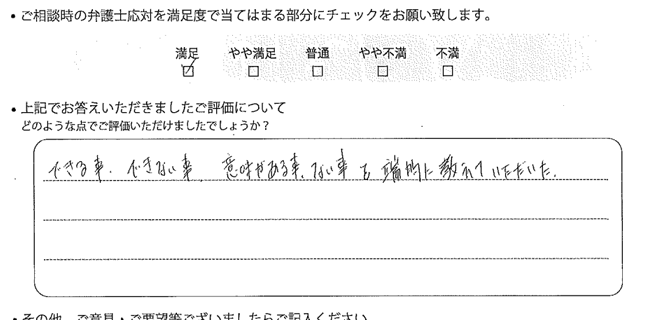 • ご相談時の弁護士応対を満足度で当てはまる部分にチェックをお願い致します。
満足 やや満足 普通 やや不満 不満
☑ □ □ □ □
• 上記でお答えいただきましたご評価について
どのような点でご評価いただけましたでしょうか?
できる事、できない事、意味がある事、ない事を端的に教えていただいた。
• その他、ご意見・ご要望等ございましたらご記入ください